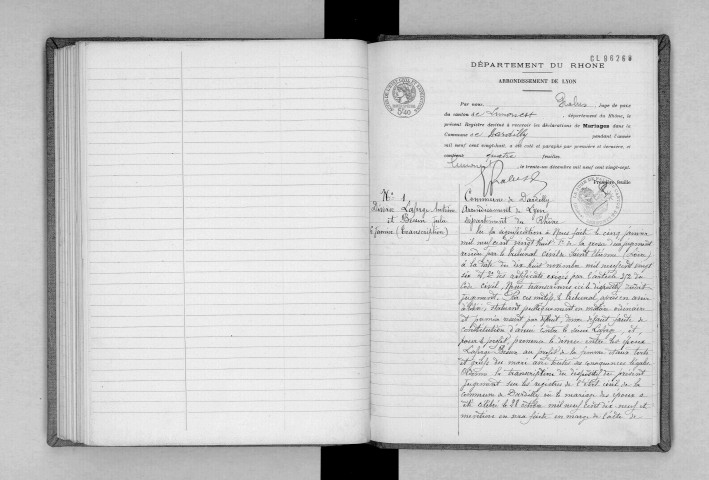 CL 96260
DÉPARTEMENT DU RHONE
ARRONDISSEMENT DE LYON
Par nous, Juge de paix
du canton de Limonest, département du Rhône, le
présent Registre destiné à recevoir les déclarations de Mariages dans la
Commune de Dardilly pendant l'année
mil neuf cent vingt-huit, a été coté et paraphé par première et dernière, et
contient quatre feuilles
Limonest, le trente-un décembre mil neuf cent vingt-sept.
Première feuille
5f40
N° 1
Divorce Lafarge Antoine
et Besson Julie
5 janvier (transcription)
Commune de Dardilly
Arrondissement de Lyon
Département du Rhône
Vu la signification à Nous faite le cinq janvier
mil neuf cent vingt huit 1° de la grosse d'un jugement
rendu par le tribunal civil de Saint Etienne (Loire)
à la date du dix huit novembre mil neuf cent vingt
six et 2° des certificats exigés par l'article 252 du
Code civil, Nous transcrivons ici le dispositif dudit
jugement. Par ces motifs, le tribunal, après en avoir
délibéré, statuant publiquement en matière ordinaire
et premier ressort par défaut, donne défaut faute de
constitution d'avoué contre le sieur Lafarge, et,
pour le profit, prononce le divorce entre les époux
Lafarge Besson au profit de la femme et aux torts
et griefs du mari avec toutes ses conséquences légales
Ordonne la transcription du dispositif du présent
jugement sur les registres de l'état civil de la
commune de Dardilly où le mariage des époux a
été célébré le 28 octobre mil neuf cent dix neuf et
mention en sera faite en marge de l'acte de